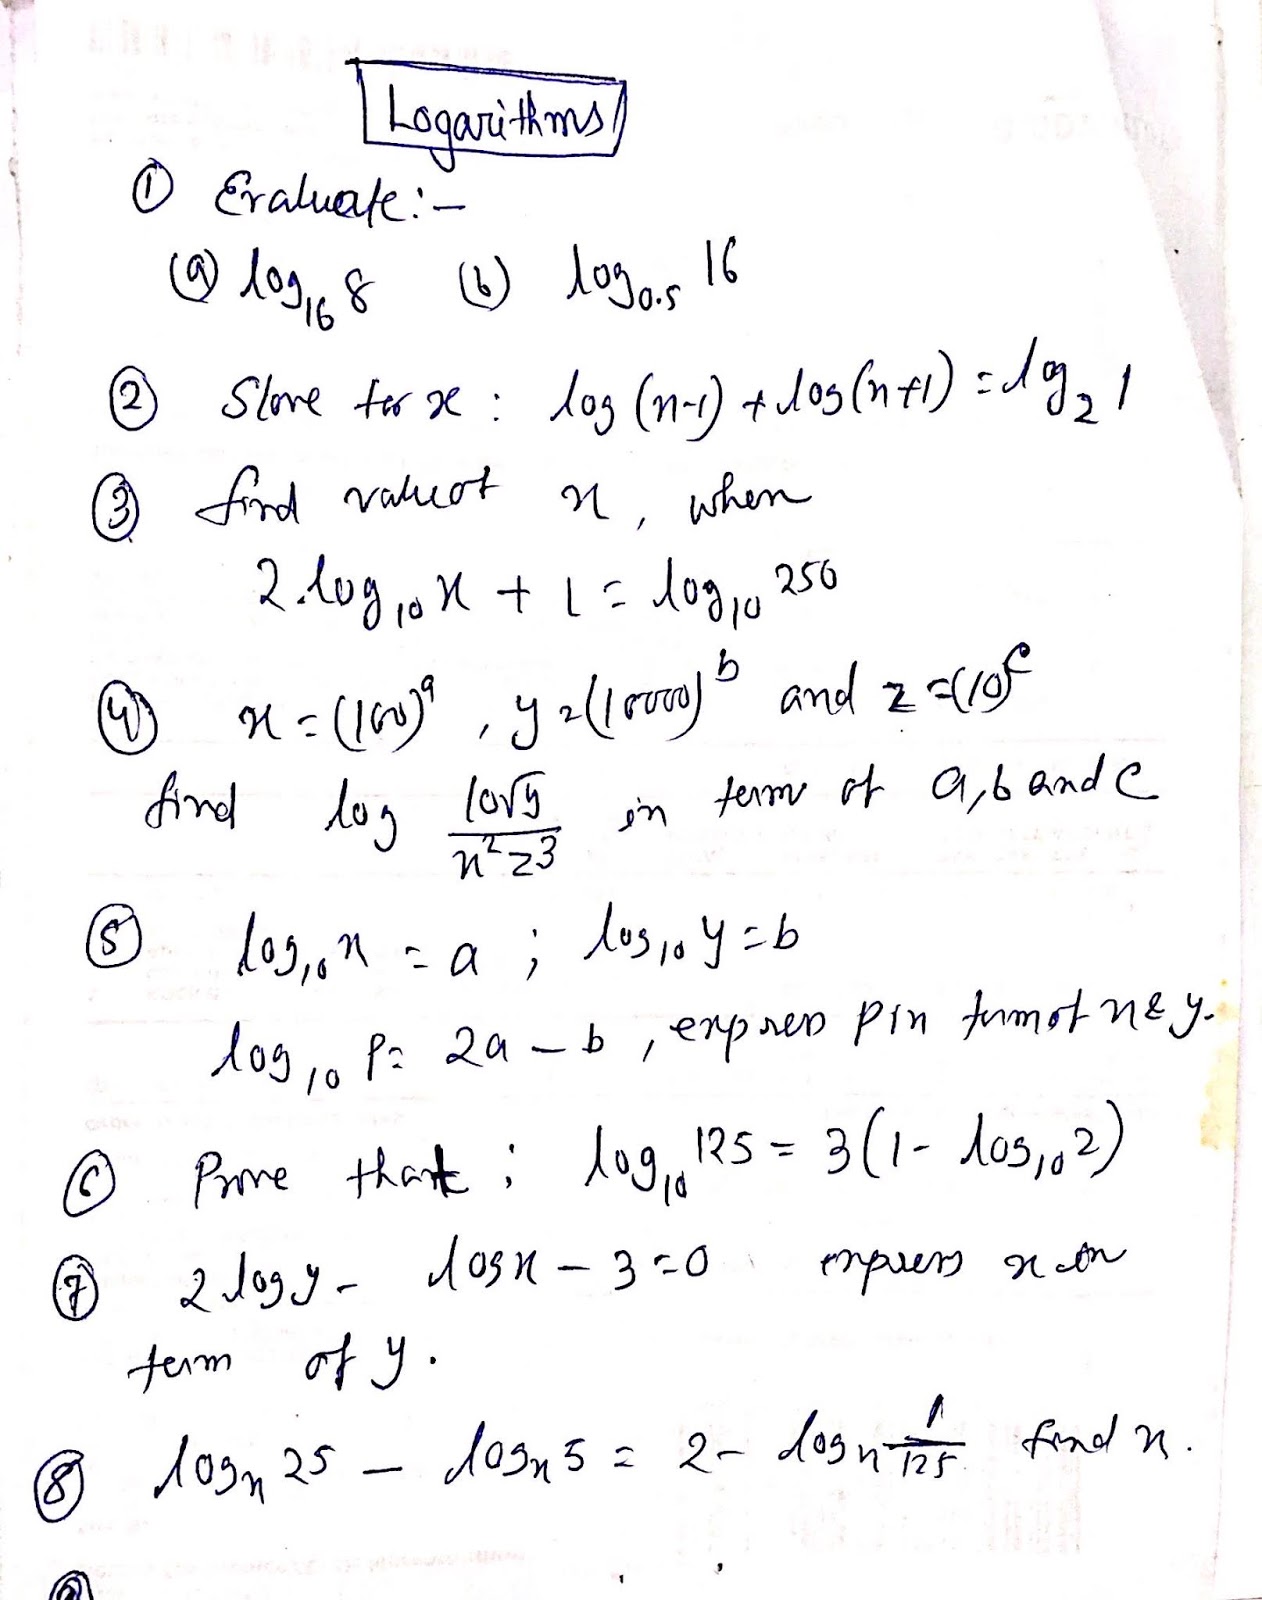 Logarithms
① Evaluate:-
(a) log₁₆ 8 (b) log₀.₅ 16
② Slove for x : log (x-1) + log (x+1) = log₂ 1
③ find value of x, when
2.log₁₀ x + 1 = log₁₀ 250
④ x = (100)ᵃ , y = (10000)ᵇ and z = (10)ᶜ
find log 10√y / x²z³ in term of a, b and c
⑤ log₁₀ x = a ; log₁₀ y = b
log₁₀ P = 2a - b , express P in term of x & y.
⑥ Prove that ; log₁₀ 125 = 3(1 - log₁₀ 2)
⑦ 2 log y - log x - 3 = 0 express x in
term of y.
⑧ logₓ 25 - logₓ 5 = 2 - logₓ 1/125 find x.